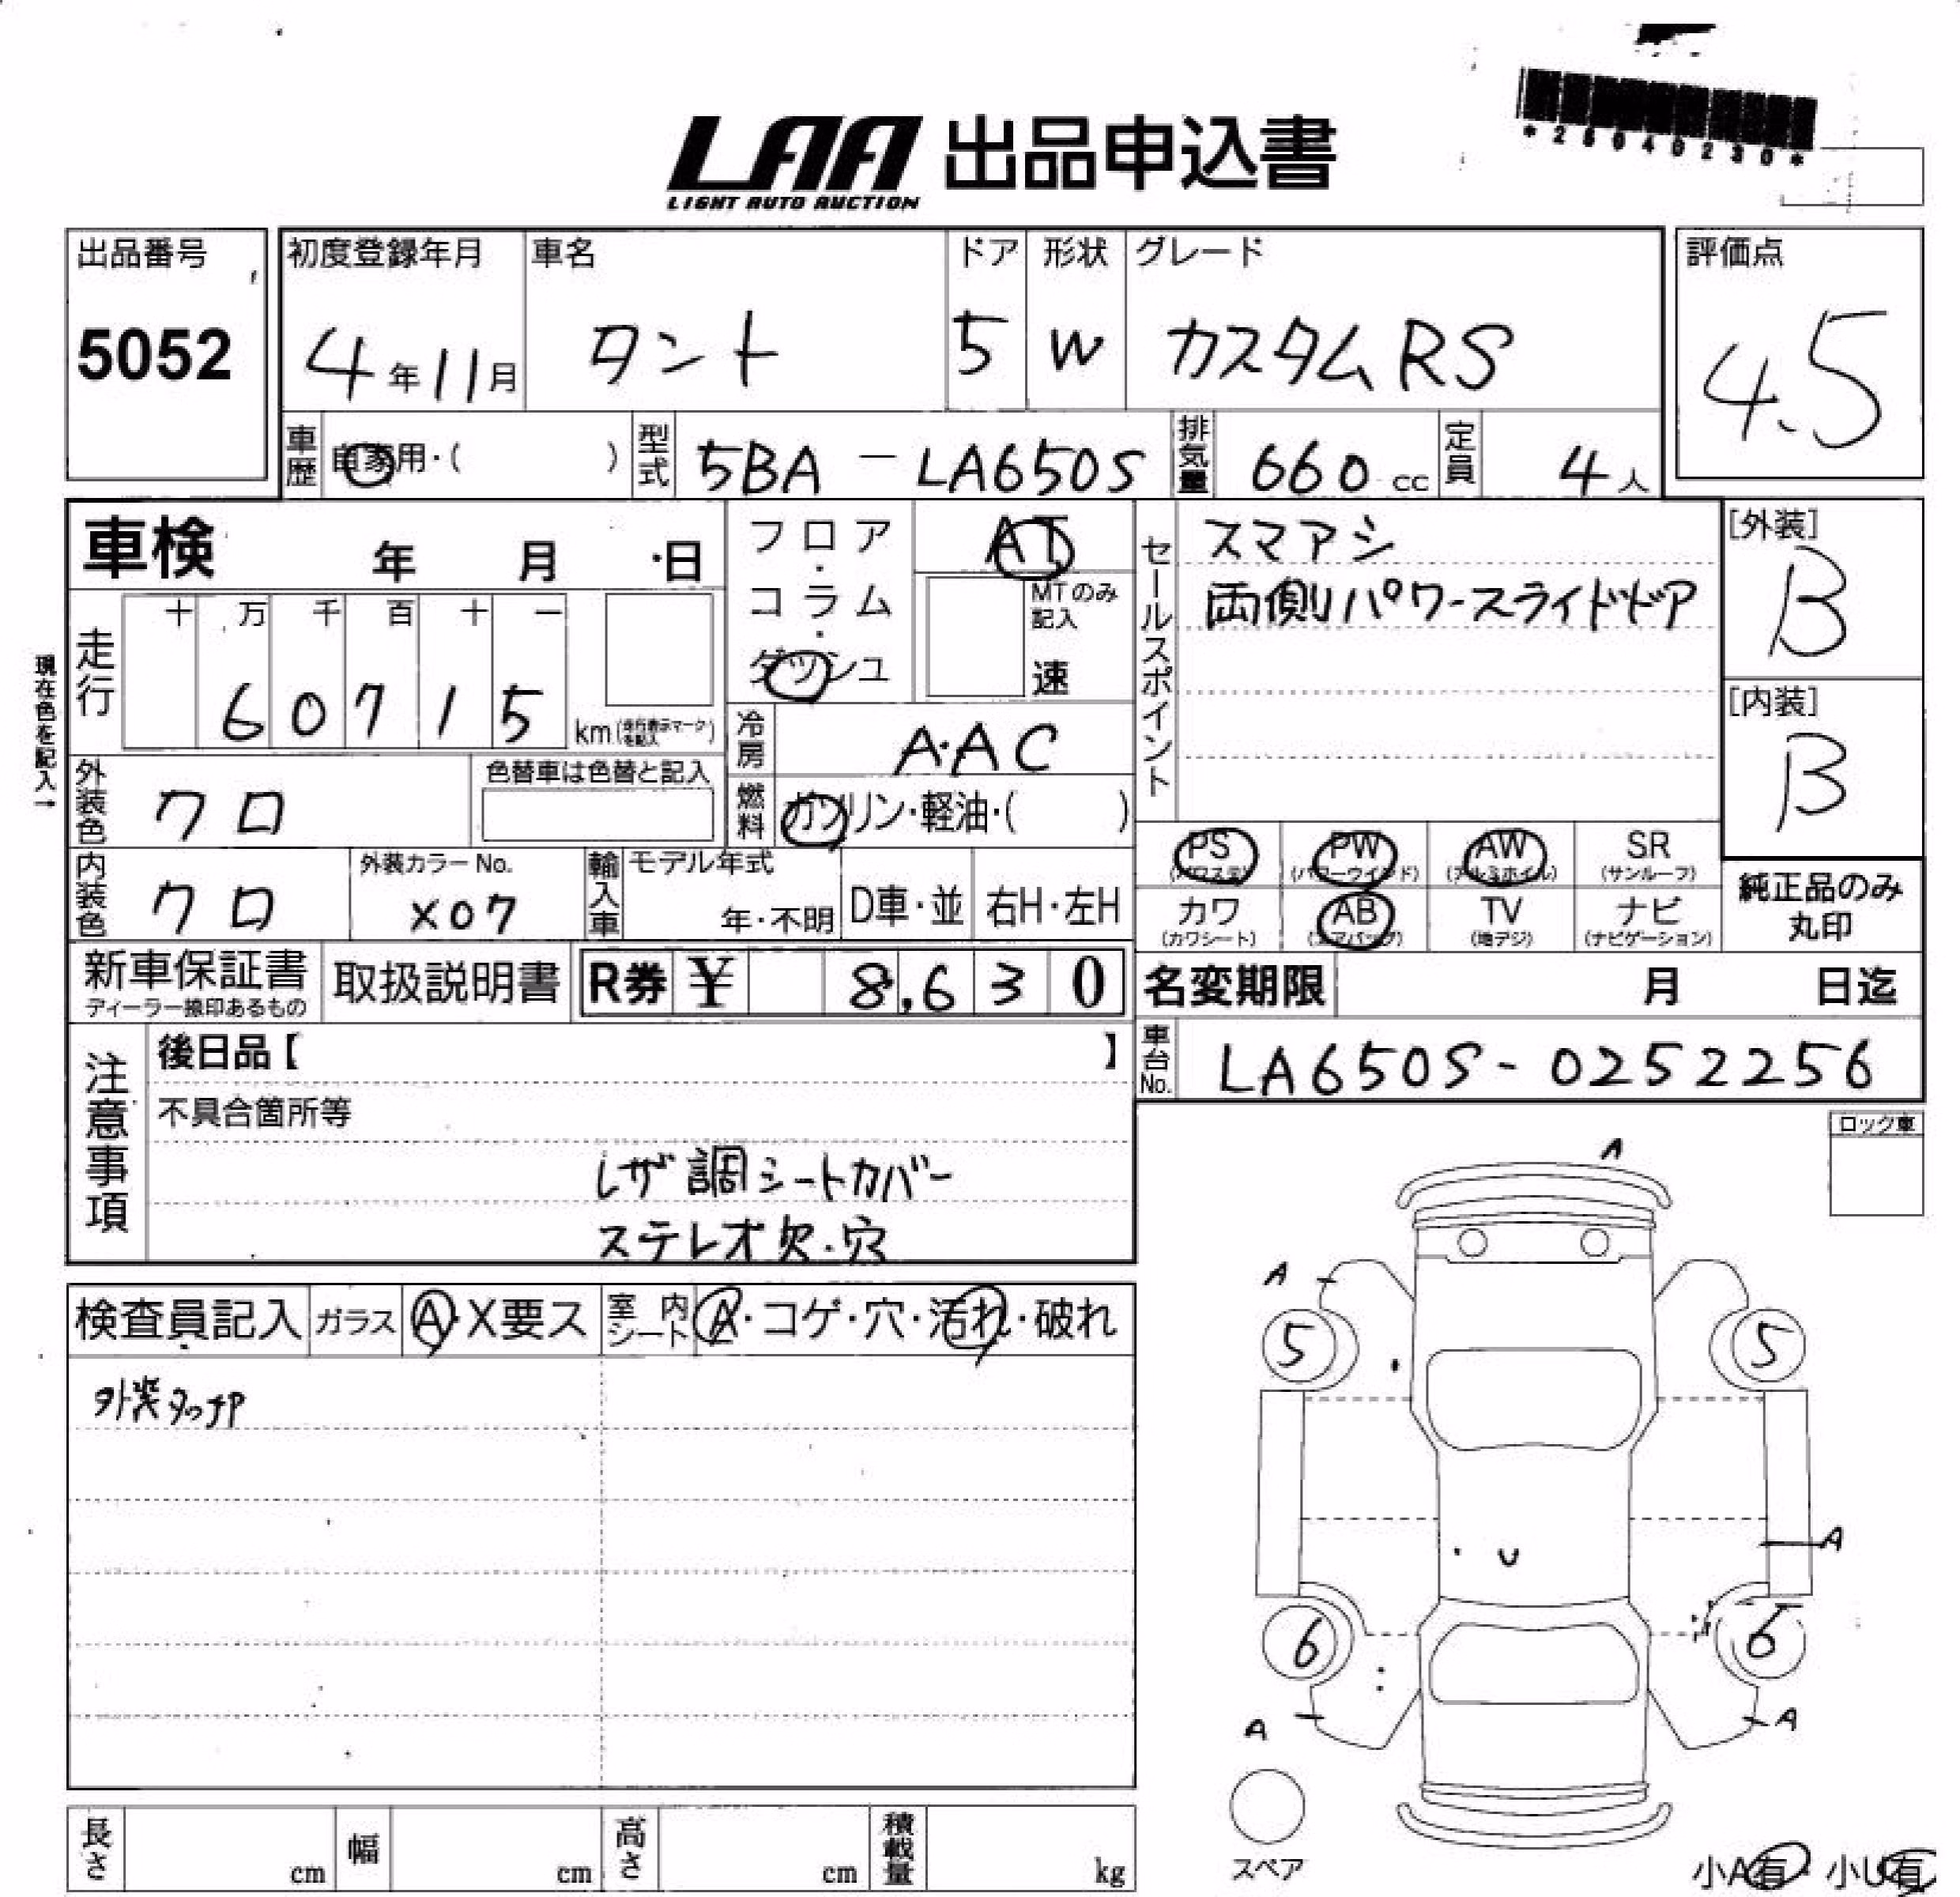 *25040230*
LAA 出品申込書
LIGHT AUTO AUCTION
出品番号
5052
初度登録年月
4年11月
車名
タント
ドア
5
形状
W
グレード
カスタムRS
評価点
4.5
車歴
自家用・( )
型式
5BA - LA650S
排気量
660 cc
定員
4人
車検 年 月 日
フロア・コラム・ダッシュ
AT
MTのみ記入
速
セールスポイント
スマアシ
両側パワースライドドア
[外装]
B
[内装]
B
現在色を記入→
走行
十 万 千 百 十 一
6 0 7 1 5
km(走行表示マークを記入)
冷房
A・AC
燃料
ガソリン・軽油・( )
外装色
クロ
色替車は色替と記入
内装色
クロ
外装カラーNo.
X07
輸入車
モデル年式
年・不明
D車・並
右H・左H
PS
(パワステ)
PW
(パワーウインド)
AW
(アルミホイル)
SR
(サンルーフ)
カワ
(カワシート)
AB
(エアバッグ)
TV
(地デジ)
ナビ
(ナビゲーション)
純正品のみ
丸印
新車保証書
ディーラー捺印あるもの
取扱説明書
R券 ¥ 8,630
名変期限 月 日迄
車台No.
LA650S-0252256
注意事項
後日品【 】
不具合箇所等
レザ調シートカバー
ステレオ欠・穴
ロック車
検査員記入
ガラス
A・X要ス
室内シート
A・コゲ・穴・汚れ・破れ
外装タッチP
A
A
5
5
U
A
6
6
A
A
スペア
長さ cm
幅 cm
高さ cm
積載量 kg
小A有・小U有